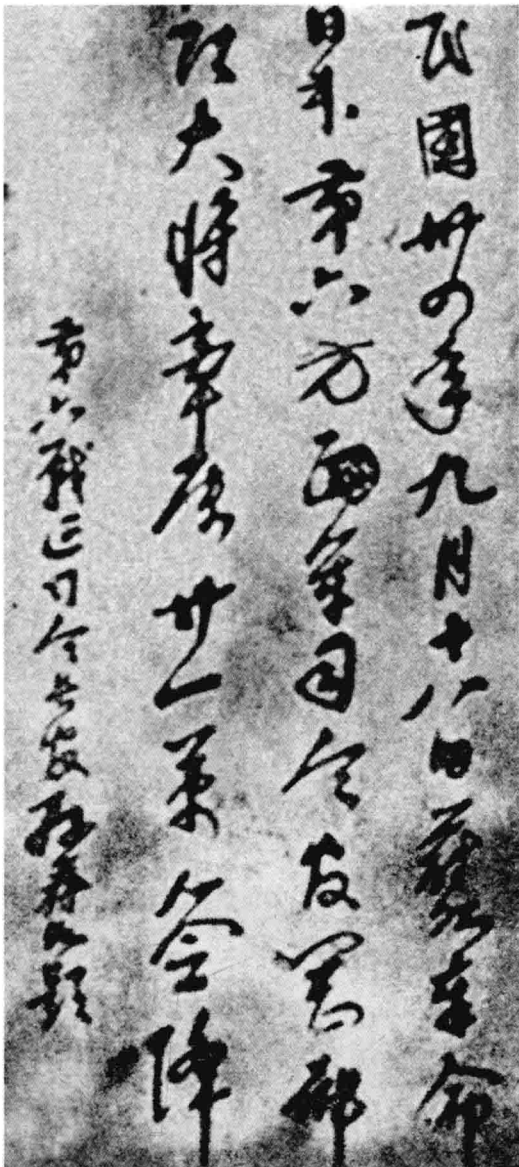 民國卅四年九月十八日蔚如奉命
日本第六方面軍司令官岡部
大將率屬廿一萬簽降
第六戰區司令長官孫蔚如題